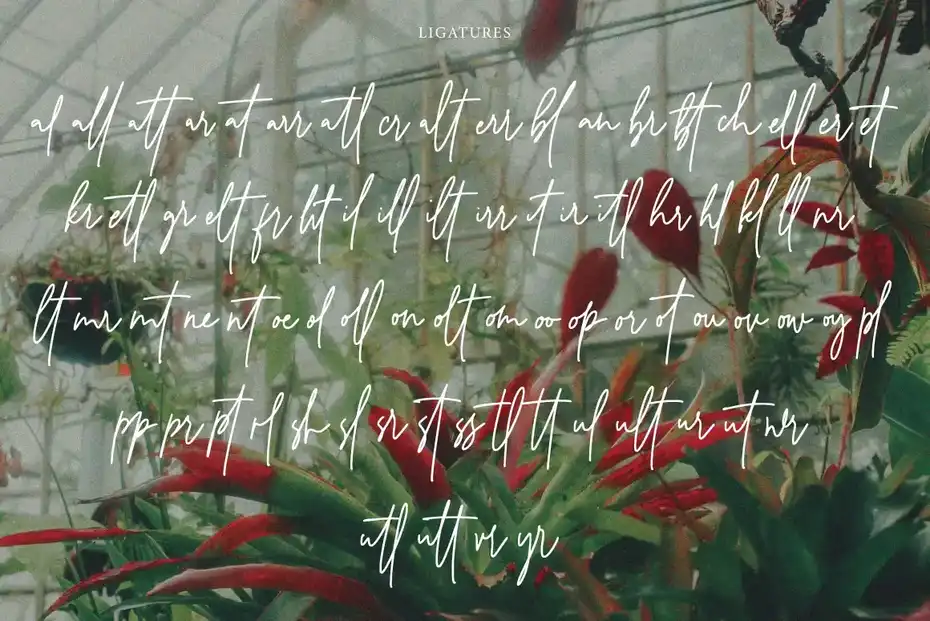 LIGATURES
al all att ar at arr atl cr alt err bl an br bt ch ell er et
kr etl gr elt fr ht il ill ilt irr it ir itl hr hl kl ll nr
lt mr mt ne nt oe ol oll on olt om oo op or ot ou ov ow oy pl
pp pr pt rl sh sl sr st ss tl tt ul ult ur ut wr
utl utt vr yr